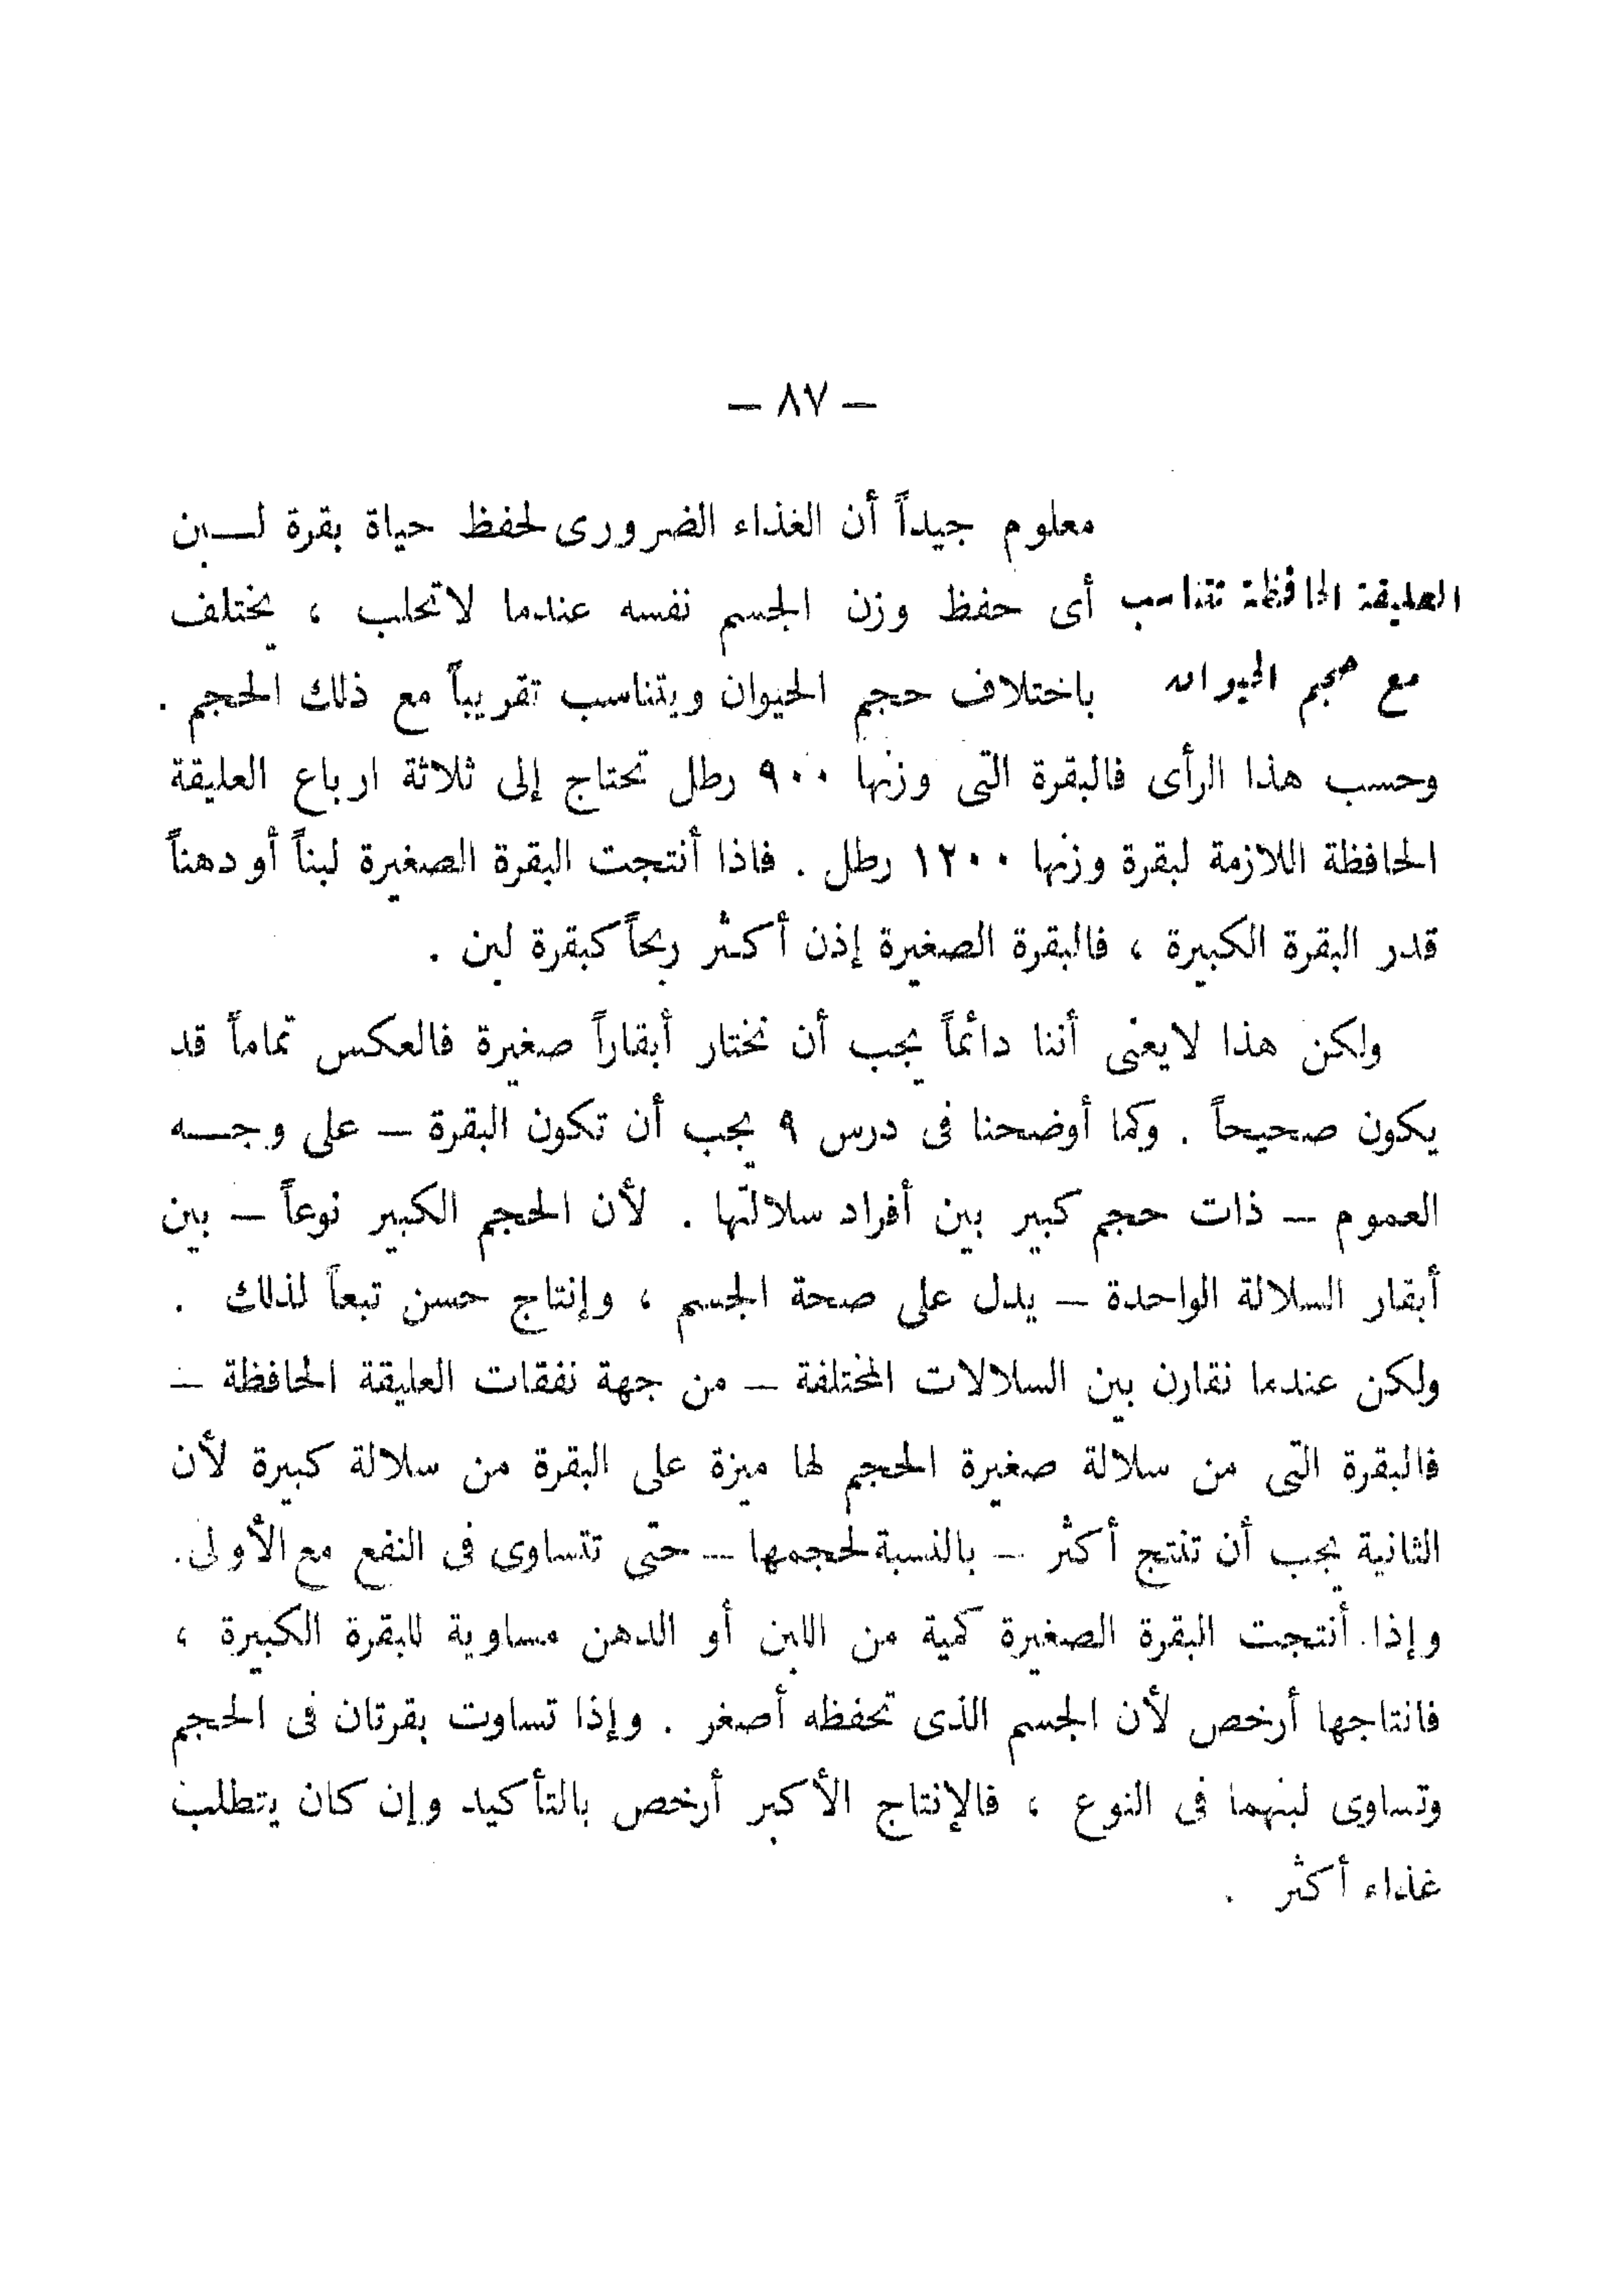 — ٨٧ —
معلوم جيداً أن الغذاء الضرورى لحفظ حياة بقرة لبن
العليقة الحافظة تتناسب
مع حجم الحيوان
أى حفظ وزن الجسم نفسه عندما لاتحلب ، يختلف
باختلاف حجم الحيوان ويتناسب تقريباً مع ذلك الحجم .
وحسب هذا الرأى فالبقرة التى وزنها ٩٠٠ رطل تحتاج إلى ثلاثة ارباع العليقة
الحافظة اللازمة لبقرة وزنها ١٢٠٠ رطل . فاذا أنتجت البقرة الصغيرة لبناً أو دهناً
قدر البقرة الكبيرة ، فالبقرة الصغيرة إذن أكثر ربحاً كبقرة لبن .
ولكن هذا لايعنى أننا دائماً يجب أن نختار أبقاراً صغيرة فالعكس تماماً قد
يكون صحيحاً . وكما أوضحنا فى درس ٩ يجب أن تكون البقرة — على وجه
العموم — ذات حجم كبير بين أفراد سلالتها . لأن الحجم الكبير نوعاً — بين
أبقار السلالة الواحدة — يدل على صحة الجسم ، وإنتاج حسن تبعاً لذلك .
ولكن عندما نقارن بين السلالات المختلفة — من جهة نفقات العليقة الحافظة —
فالبقرة التى من سلالة صغيرة الحجم لها ميزة على البقرة من سلالة كبيرة لأن
الثانية يجب أن تنتج أكثر — بالنسبة لحجمها — حتى تتساوى فى النفع مع الأولى.
وإذا أنتجت البقرة الصغيرة كمية من اللبن أو الدهن مساوية للبقرة الكبيرة ،
فانتاجها أرخص لأن الجسم الذى تحفظه أصغر . وإذا تساوت بقرتان فى الحجم
وتساوى لبنهما فى النوع ، فالإنتاج الأكبر أرخص بالتأكيد وإن كان يتطلب
غذاء أكثر .